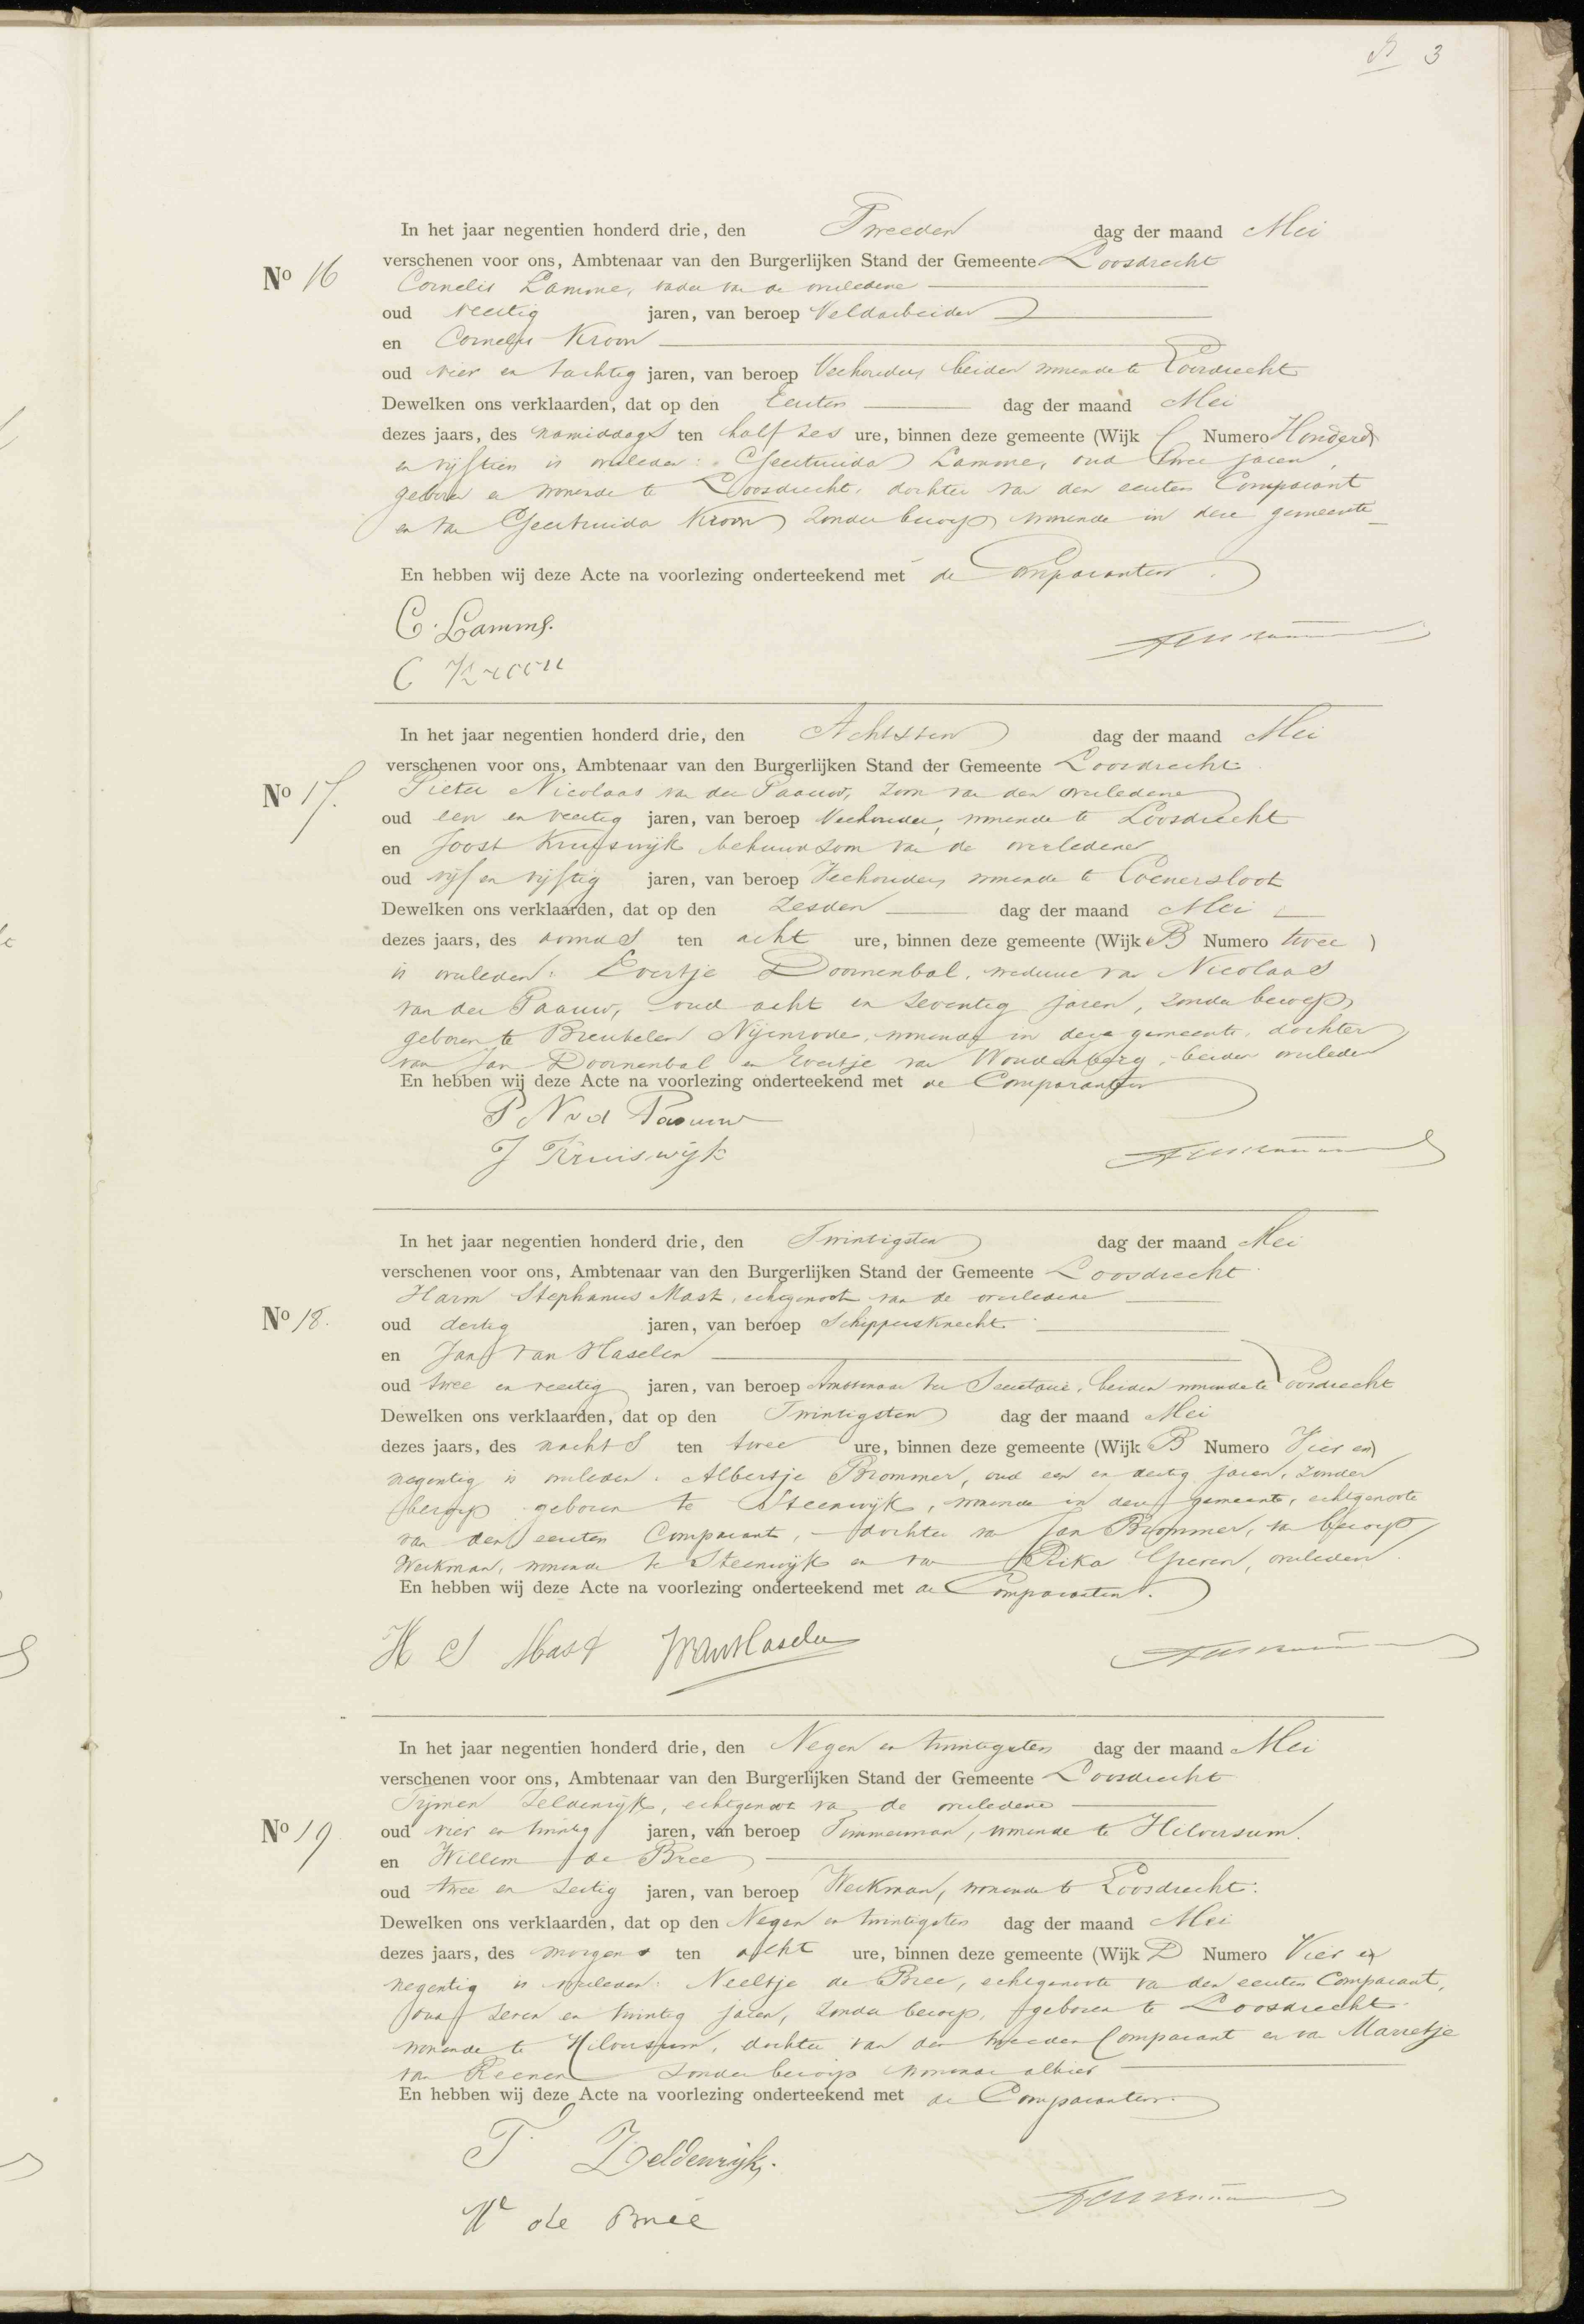 3
In het jaar negentien honderd drie, den Tweeden dag der maand Mei
verschenen voor ons, Ambtenaar van den Burgerlijken Stand der Gemeente Loosdrecht
No 16 Cornelis Lamme, vader van de overledene
oud veertig jaren, van beroep Veldarbeider
en Cornelis Kroon
oud vier en tachtig jaren, van beroep Veehouder, beiden wonende te Loosdrecht
Dewelken ons verklaarden, dat op den Eersten dag der maand Mei
dezes jaars, des namiddags ten half zes ure, binnen deze gemeente (Wijk C Numero Honderd
en vijftien is overleden: Geertruida Lamme, oud twee jaren,
geboren en wonende te Loosdrecht, dochter van den eersten Comparant
en van Geertruida Kroon zonder beroep, wonende in deze gemeente
En hebben wij deze Acte na voorlezing onderteekend met de Comparanten.
C. Lamme.
C Kroon
In het jaar negentien honderd drie, den Achtsten dag der maand Mei
verschenen voor ons, Ambtenaar van den Burgerlijken Stand der Gemeente Loosdrecht
No 17. Pieter Nicolaas van der Paauw, zoon van den overledene
oud een en veertig jaren, van beroep Veehouder, wonende te Loosdrecht
en Joost Kruiswijk behuwdzoon van de overledene
oud vijf en vijftig jaren, van beroep Veehouder, wonende te Loenersloot
Dewelken ons verklaarden, dat op den Zesden dag der maand Mei
dezes jaars, des avonds ten acht ure, binnen deze gemeente (Wijk B Numero twee )
is overleden: Evertje Doornenbal, weduwe van Nicolaas
van der Paauw, oud acht en zeventig jaren, zonder beroep,
geboren te Breukelen Nijenrode, wonende in deze gemeente, dochter
van Jan Doornenbal en Evertje van Woudenberg, beiden overleden
En hebben wij deze Acte na voorlezing onderteekend met de Comparanten
P N v d Paauw
J Kruiswijk
In het jaar negentien honderd drie, den Twintigsten dag der maand Mei
verschenen voor ons, Ambtenaar van den Burgerlijken Stand der Gemeente Loosdrecht
Harm Stephanus Mast, echtgenoot van de overledene
No 18. oud dertig jaren, van beroep Schippersknecht
en Jan van Haselen
oud twee en veertig jaren, van beroep Ambtenaar ter Secretarie, beiden wonende te Loosdrecht
Dewelken ons verklaarden, dat op den Twintigsten dag der maand Mei
dezes jaars, des nachts ten twee ure, binnen deze gemeente (Wijk B Numero Vier en)
negentig is overleden: Albertje Brommer, oud een en dertig jaren, zonder
beroep geboren te Steenwijk, wonende in deze gemeente, echtgenoote
van den eersten Comparant, dochter van Jan Brommer, van beroep
Werkman, wonende te Steenwijk en van Rika overleden
En hebben wij deze Acte na voorlezing onderteekend met de Comparanten.
H S Mast JvanHaselen
In het jaar negentien honderd drie, den Negen en twintigsten dag der maand Mei
verschenen voor ons, Ambtenaar van den Burgerlijken Stand der Gemeente Loosdrecht
Tijmen Zeldenrijk, echtgenoot van de overledene
No 19 oud vier en twintig jaren, van beroep Timmerman, wonende te Hilversum.
en Willem de Bree
oud twee en zestig jaren, van beroep Werkman, wonende te Loosdrecht.
Dewelken ons verklaarden, dat op den Negen en twintigsten dag der maand Mei
dezes jaars, des morgens ten acht ure, binnen deze gemeente (Wijk D Numero Vier en
negentig is overleden: Neeltje de Bree, echtgenoote van den eersten Comparant,
oud zeven en twintig jaren, zonder beroep, geboren te Loosdrecht
wonende te Hilversum, dochter van den tweeden Comparant en van Marretje
van Reenen zonder beroep wonende alhier
En hebben wij deze Acte na voorlezing onderteekend met de Comparanten.
T Zeldenrijk.
W de Bree